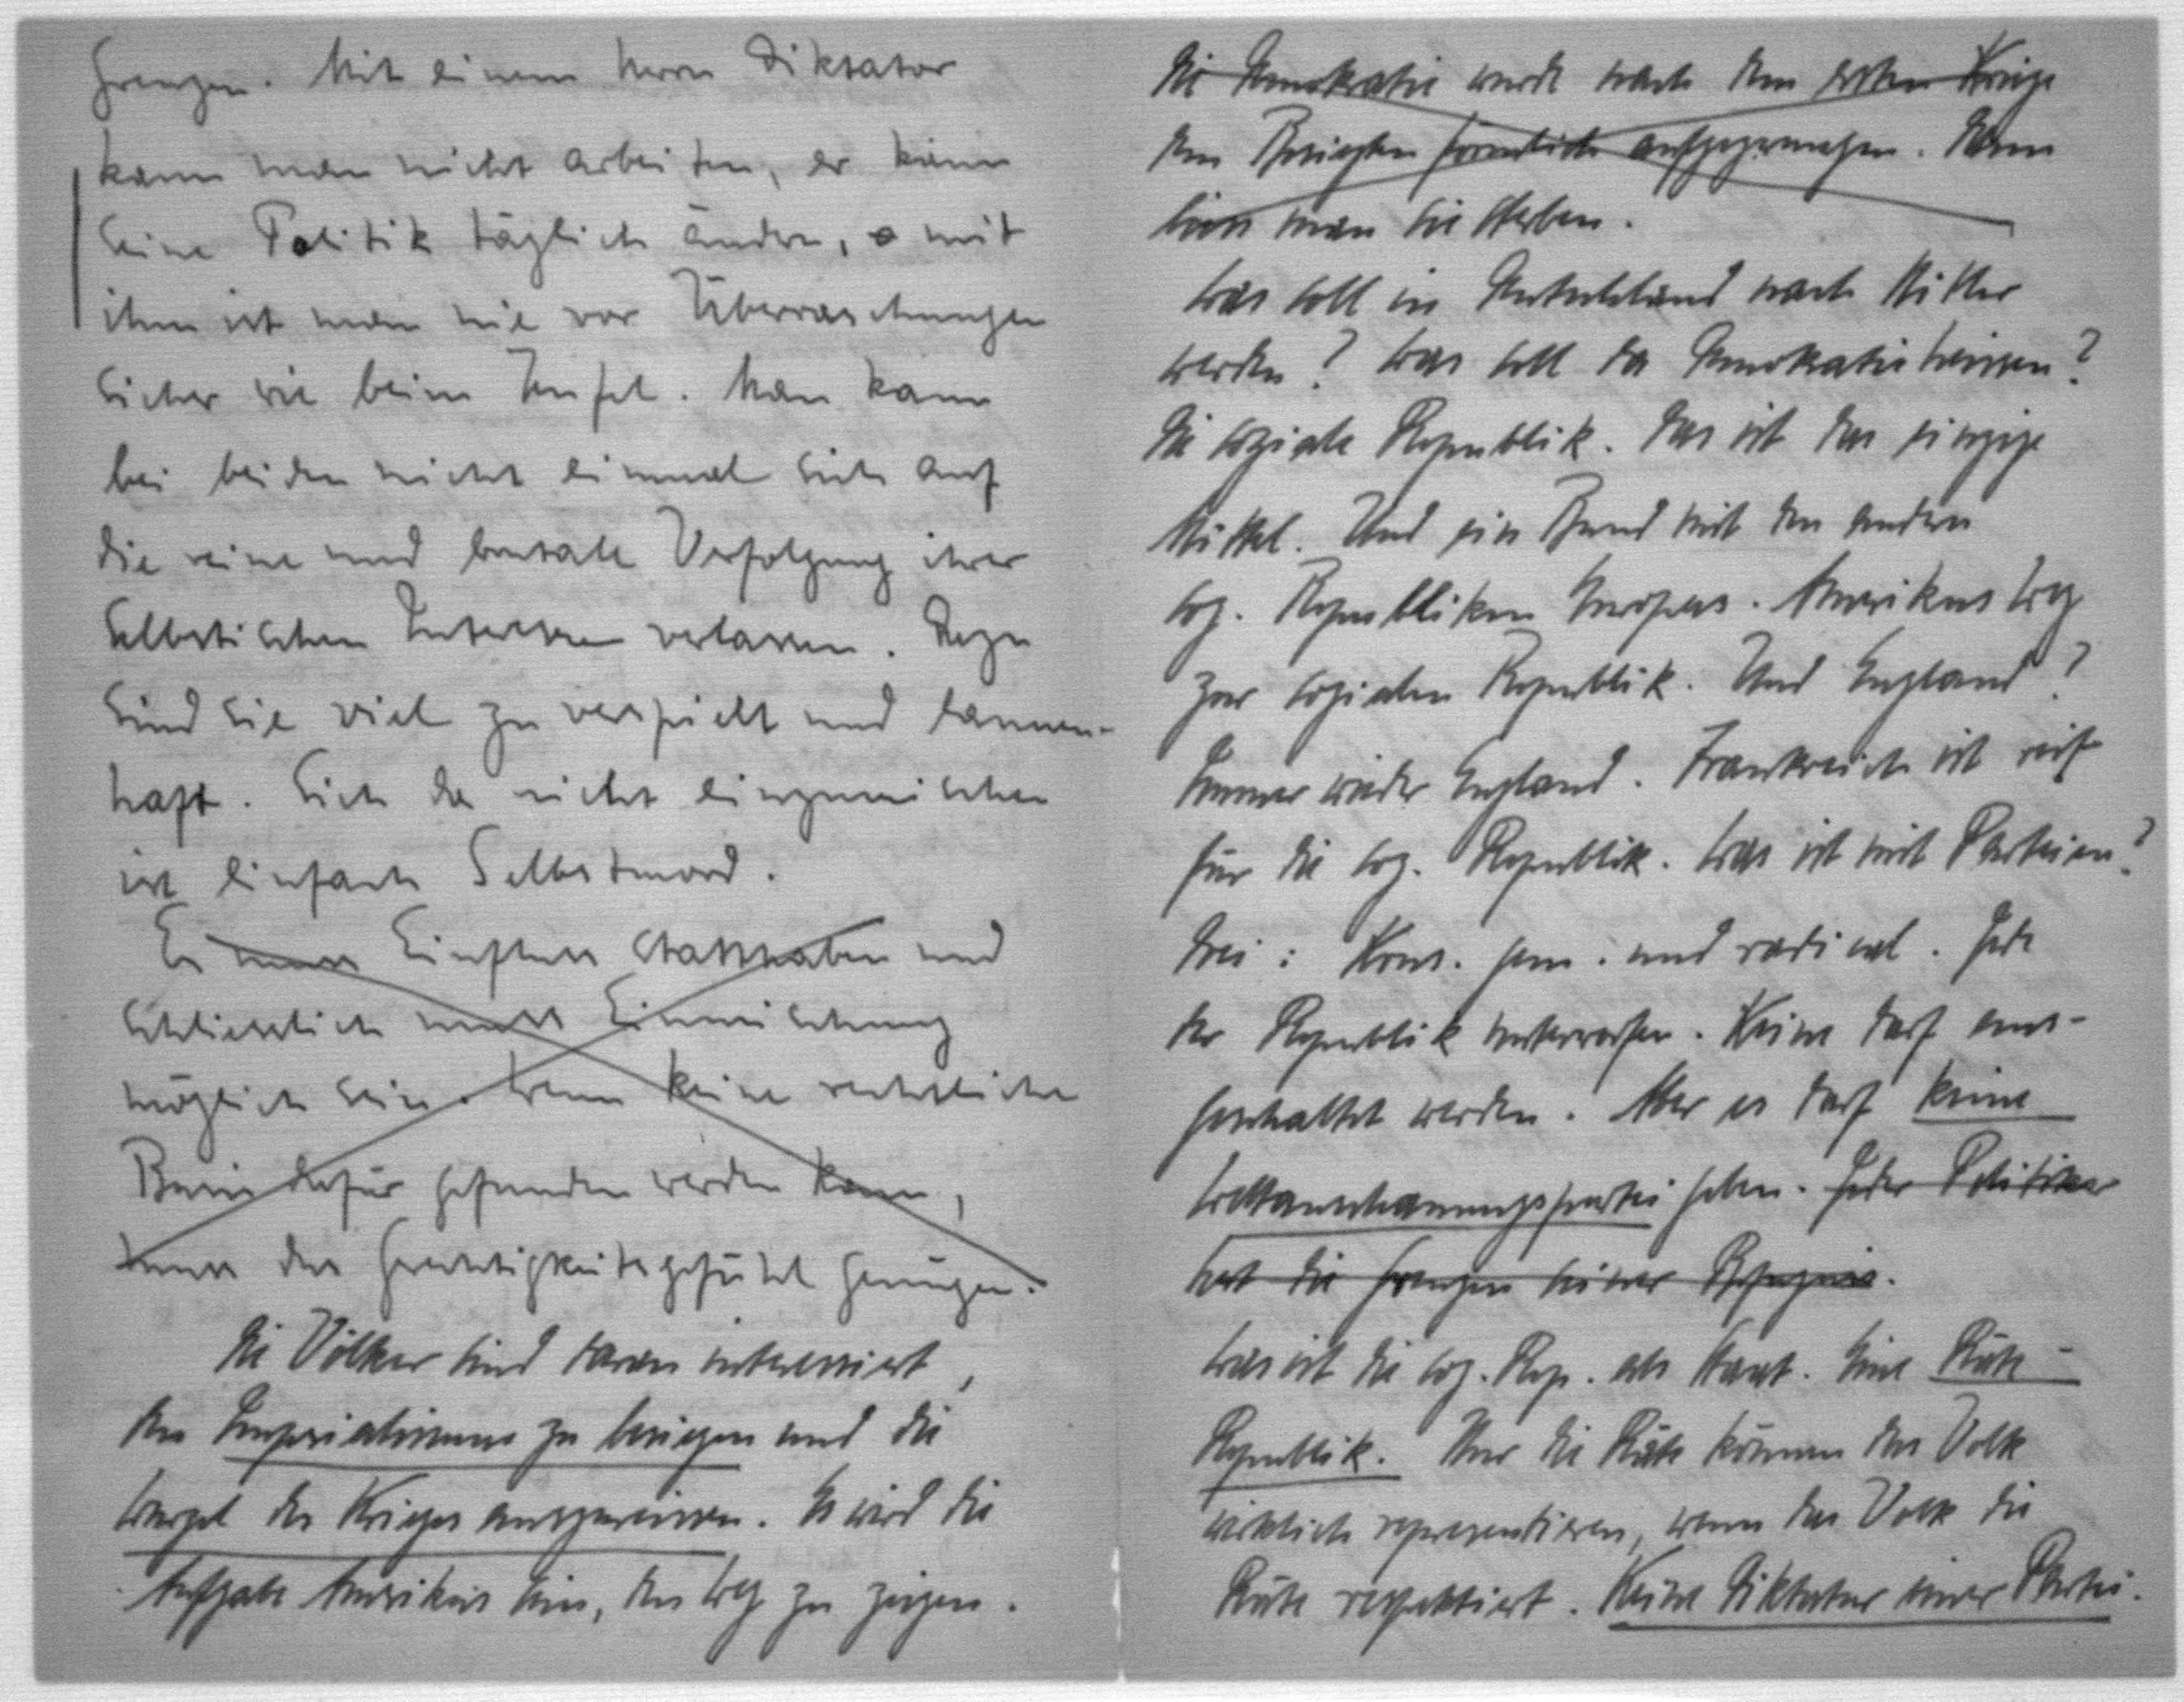 Grenzen. Mit einem Herrn Diktator
kann man nicht arbeiten, er kann
seine Politik täglich ändern, mit
ihm ist man nie vor Überraschungen
sicher wie beim Teufel. Man kann
bei beiden nicht einmal sich auf
die reine und brutale Verfolgung ihrer
selbstischen Interessen verlassen. Dazu
sind sie viel zu verspielt und launen-
haft. Sich da nicht einzumischen
ist einfach Selbstmord.
Es muss Einfluss statthaben und
schliesslich muss Einmischung
möglich sein. Wenn keine rechtliche
Basis dafür gefunden werden kann,
muss das Gerechtigkeitsgefühl genügen.
Die Völker sind daran interessiert,
den Imperialismus zu besiegen und die
Wurzel des Krieges auszureissen. Es wird die
Aufgabe Amerikas sein, den Weg zu zeigen.
Die Demokratie wurde nach dem ersten Kriege
den Besiegten förmlich aufgezwungen. Dann
liess man sie sterben.
Was soll in Deutschland nach Hitler
werden? Was soll da Demokratie heissen?
Die soziale Republik. Das ist das einzige
Mittel. Und ein Bund mit den andern
soz. Republiken Europas. Amerikas Weg
zur sozialen Republik. Und England?
Immer wieder England. Frankreich ist reif
für die soz. Republik. Was ist mit Parteien?
Drei: Kons. gem. und radical. Jede
der Republik unterworfen. Keine darf aus-
geschaltet werden. Aber es darf keine
Weltanschauungspartei geben. Jeder Politiker
hat die Grenzen seiner Befugnis.
Was ist die soz. Rep. als Staat. Eine Räte-
Republik. Nur die Räte können das Volk
wirklich representieren, wenn das Volk die
Räte respektiert. Keine Diktatur einer Partei.